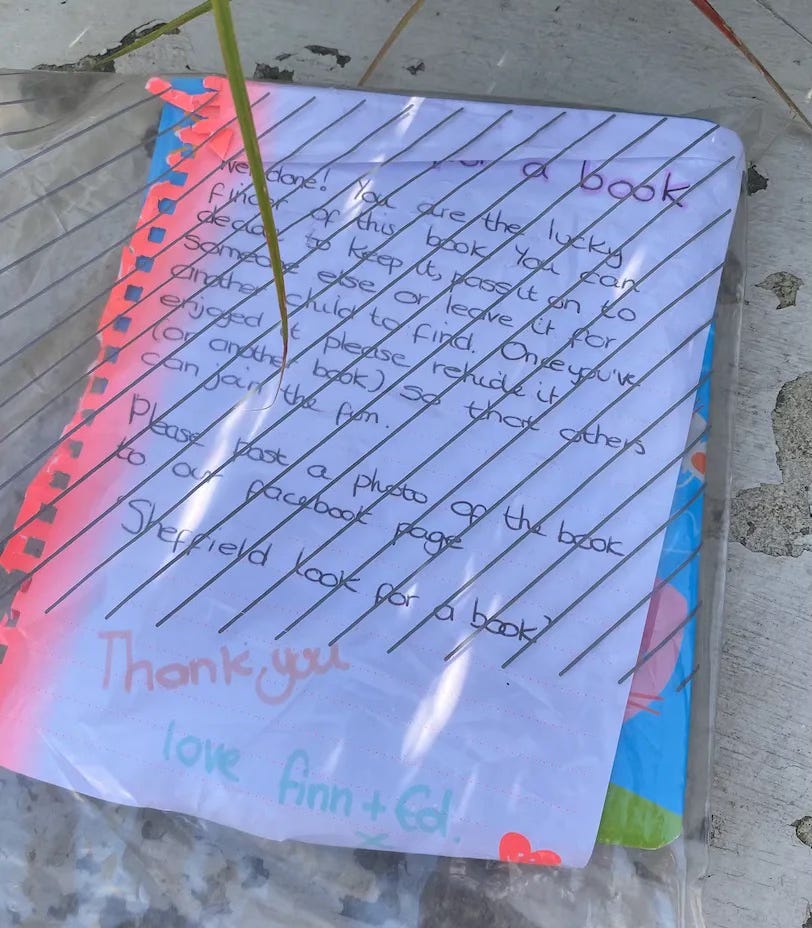 a book
Well done! You are the lucky
finder of this book. You can
decide to keep it, pass it on to
someone else or leave it for
another child to find. Once you've
enjoyed it please rehide it
(or another book) so that others
can join the fun.
Please post a photo of the book
to our facebook page
'Sheffield look for a book'
Thank you
love finn + Ed.
x